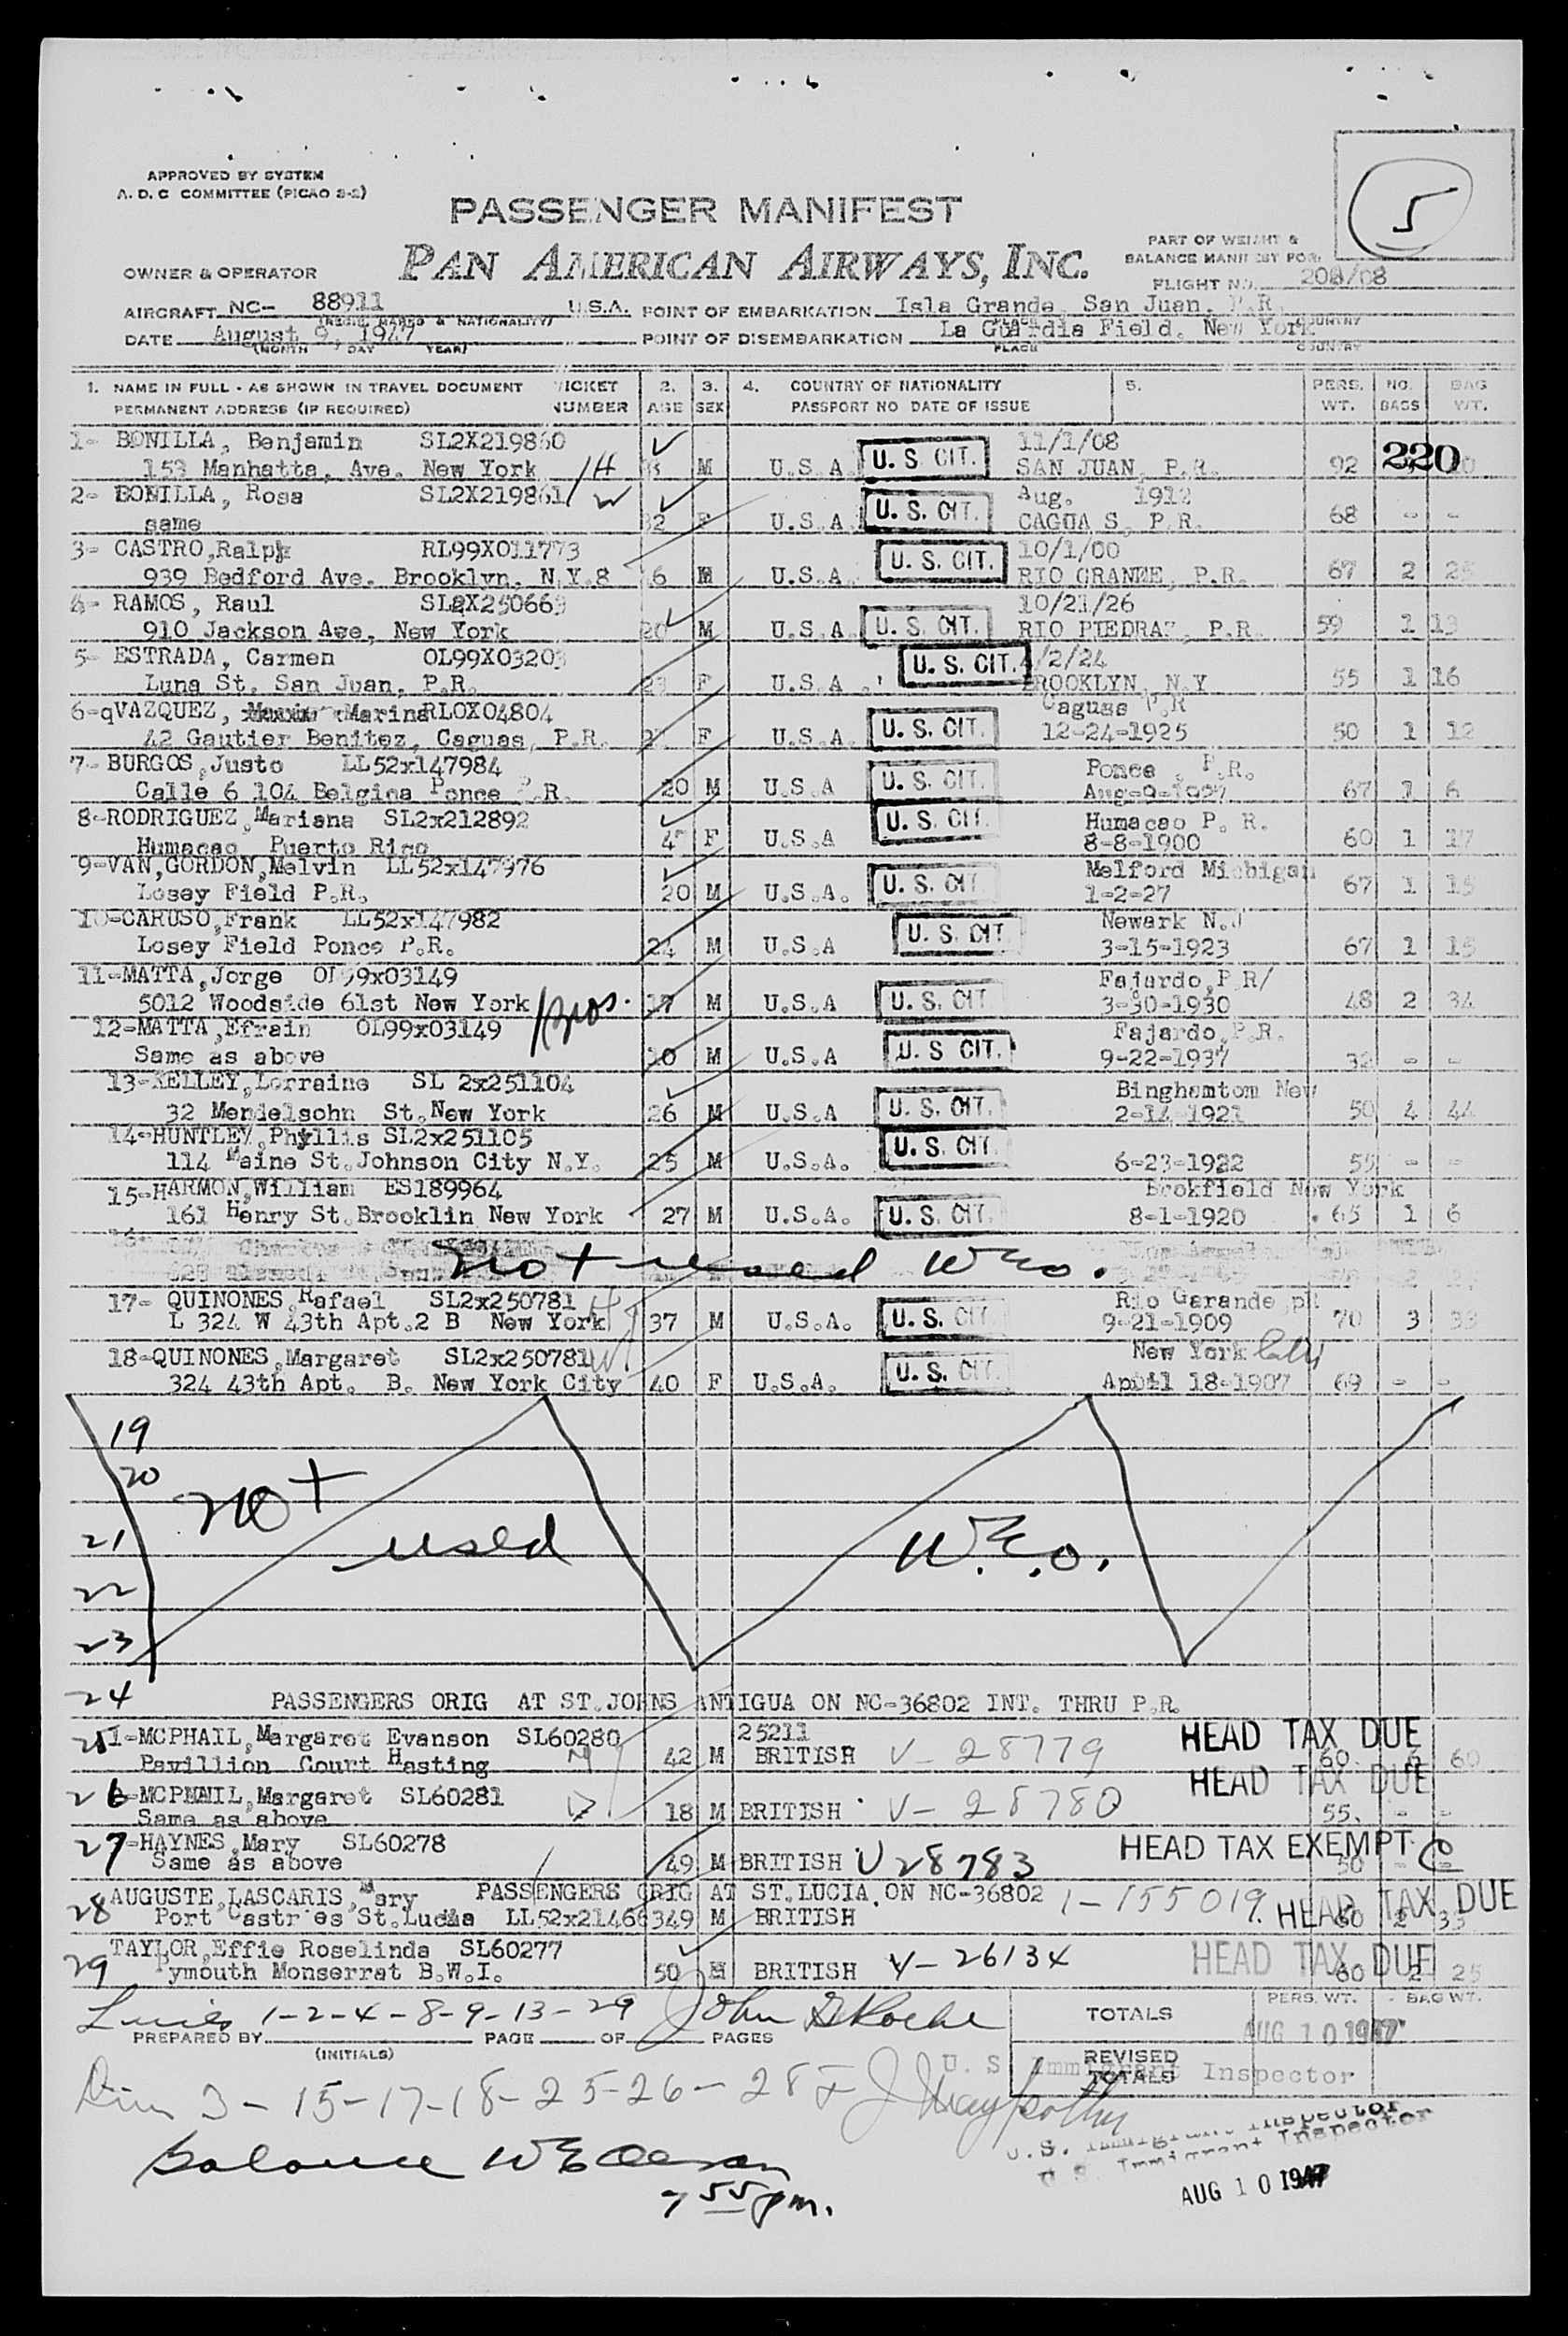 5
APPROVED BY SYSTEM
A. D. C COMMITTEE (PICAO 8-2)
PASSENGER MANIFEST
PAN AMERICAN AIRWAYS, INC.
PART OF WEIGHT &
BALANCE MANIFEST FOR
OWNER & OPERATOR
FLIGHT NO. 208/08
AIRCRAFT NC- 88911 U.S.A. POINT OF EMBARKATION Isla Grande, San Juan, P.R.
(REGIS. MARKS & NATIONALITY) PLACE COUNTRY
DATE August 9, 1947 POINT OF DISEMBARKATION La Guardia Field, New York
(MONTH DAY YEAR) PLACE COUNTRY
1. NAME IN FULL - AS SHOWN IN TRAVEL DOCUMENT TICKET 2. 3. 4. COUNTRY OF NATIONALITY 5. PERS. NO. BAG
PERMANENT ADDRESS (IF REQUIRED) NUMBER AGE SEX PASSPORT NO DATE OF ISSUE WT. BAGS WT.
1- BONILLA, Benjamin SL2X219860 11/1/08
153 Manhatta, Ave. New York H M U.S.A. U. S. CIT. SAN JUAN, P.R. 92 220
2- BONILLA, Rosa SL2X219861 W Aug. 1912
same 32 F U.S.A. U. S. CIT. CAGUA S, P.R. 68 - -
3- CASTRO, Ralph RL99X011773 10/1/00
939 Bedford Ave. Brooklyn, N.Y.8 M U.S.A. U. S. CIT. RIO GRANDE, P.R. 67 2 25
4- RAMOS, Raul SL2X250669 10/21/26
910 Jackson Ave, New York 20 M U.S.A U. S. CIT. RIO PIEDRAZ, P.R. 59 1 13
5- ESTRADA, Carmen OL99X03203 /2/24
Luna St. San Juan, P.R. 23 F U.S.A. U. S. CIT. BROOKLYN, N.Y 55 1 16
6-qVAZQUEZ, Marina RLOX04804 Caguas P.R
42 Gautier Benitez, Caguas, P.R. F U.S.A. U. S. CIT. 12-24-1925 50 1 12
7- BURGOS, Justo LL52x147984 Ponce, P.R.
Calle 6 104 Belgica Ponce P.R. 20 M U.S.A U. S. CIT. Aug-9-1927 67 1 6
8-RODRIGUEZ, Mariana SL2x212892 Humacao P. R.
Humacao Puerto Rico 47 F U.S.A U. S. CIT. 8-8-1900 60 1 17
9-VAN, GORDON, Melvin LL52x147976 Melford Michigan
Losey Field P.R. 20 M U.S.A. U. S. CIT. 1-2-27 67 1 15
10-CARUSO, Frank LL52x147982 Newark N.J
Losey Field Ponce P.R. 24 M U.S.A U. S. CIT. 3-15-1923 67 1 15
11-MATTA, Jorge OL99x03149 Fajardo, P.R/
5012 Woodside 61st New York Bros. 17 M U.S.A U. S. CIT 3-30-1930 48 2 34
12-MATTA, Efrain OL99x03149 Fajardo, P.R.
Same as above 10 M U.S.A U. S CIT. 9-22-1937 32 - -
13-KELLEY, Lorraine SL 2x251104 Binghamtom New
32 Mendelsohn St. New York 26 M U.S.A U. S. CIT. 2-14-1921 50 4 44
14-HUNTLEY, Phyllis SL2x251105
114 Maine St. Johnson City N.Y. 25 M U.S.A. U. S. CIT. 6-23-1922 55 - -
15-HARMON, William ES189964 Brokfield New York
161 Henry St. Brooklin New York 27 M U.S.A. U. S. CIT. 8-1-1920 65 1 6
not used WEO.
17- QUINONES, Rafael SL2x250781 H Rio Garande, pR
L 324 W 43th Apt.2 B New York 37 M U.S.A. U. S. CIT 9-21-1909 70 3 33
18-QUINONES, Margaret SL2x250781 W New York City
324 43th Apt. B. New York City 40 F U.S.A. U. S. CIT. April 18-1907 69 - -
19
20
not
21 used W.E.O.
22
23
24 PASSENGERS ORIG AT ST. JOHNS ANTIGUA ON NC-36802 INT. THRU P.R.
25 1-MCPHAIL, Margaret Evanson SL60280 25211 HEAD TAX DUE
Pavillion Court Hasting 42 M BRITISH V-28779 60. 6 60
26 -MCPHAIL, Margaret SL60281 HEAD TAX DUE
Same as above 18 M BRITISH V-28780 55. - -
27 -HAYNES, Mary SL60278 HEAD TAX EXEMPT
Same as above 49 M BRITISH V28783 50 - -
28 AUGUSTE, LASCARIS, Mary PASSENGERS ORIG AT ST. LUCIA ON NC-36802 1-155019 HEAD TAX DUE
Port Castries St. Lucia LL52x21466349 M BRITISH 60 2 33
29 TAYLOR, Effie Roselinda SL60277 HEAD TAX DUE
Pymouth Monserrat B.W.I. 50 BRITISH V-26134 60 2 25
1-2-4-8-9-13-29 John
PREPARED BY PAGE OF PAGES
(INITIALS)
TOTALS PERS. WT. BAG WT.
AUG 10 1947
REVISED
TOTALS
U. S. Immigrant Inspector
3-15-17-18-25-26-28
U.S. Immigrant Inspector
U.S. Immigrant Inspector
Balance
7 55 pm.
AUG 10 1947